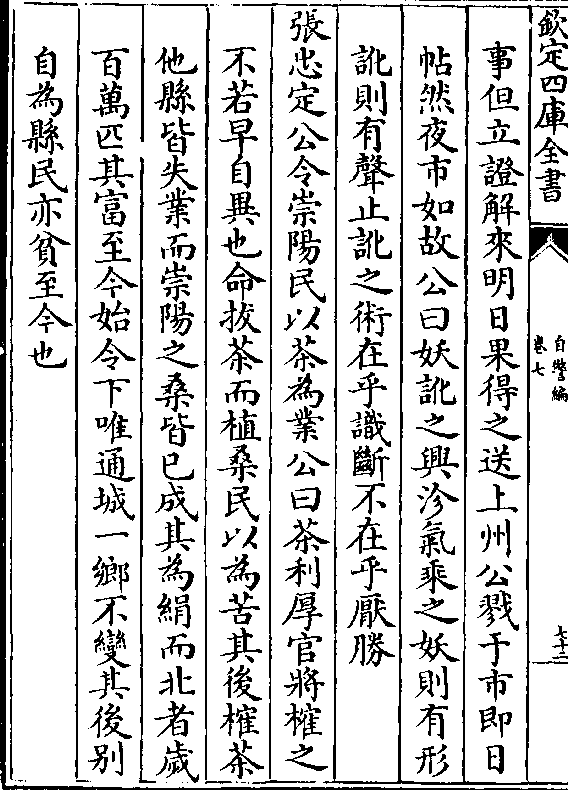 欽定四庫全書
自警編
卷七
七十二
事但立證解來明日果得之送上州公戮于市即日
帖然夜市如故公曰妖訛之興沴氣乘之妖則有形
訛則有聲止訛之術在乎識斷不在乎厭勝
張忠定公令崇陽民以茶為業公曰茶利厚官將榷之
不若早自異也命拔茶而植桑民以為苦其後榷茶
他縣皆失業而崇陽之桑皆已成其為絹而北者歲
百萬匹其富至今始令下唯通城一鄉不變其後别
自為縣民亦貧至今也